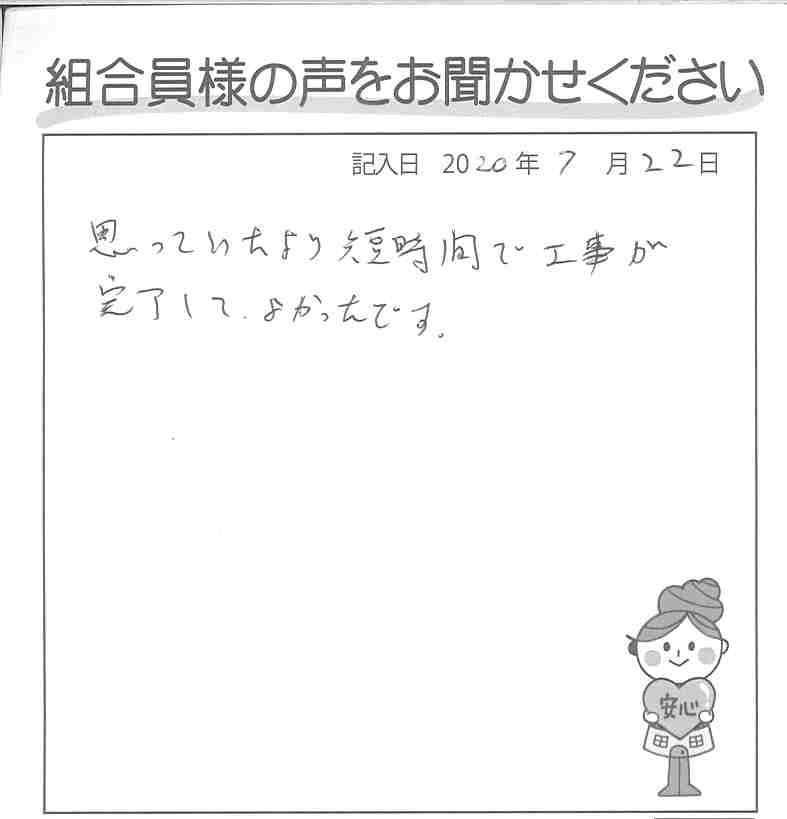 組合員様の声をお聞かせください
記入日 2020年 7 月 22日
思っていたより短時間で工事が
完了して、よかったです。
安心